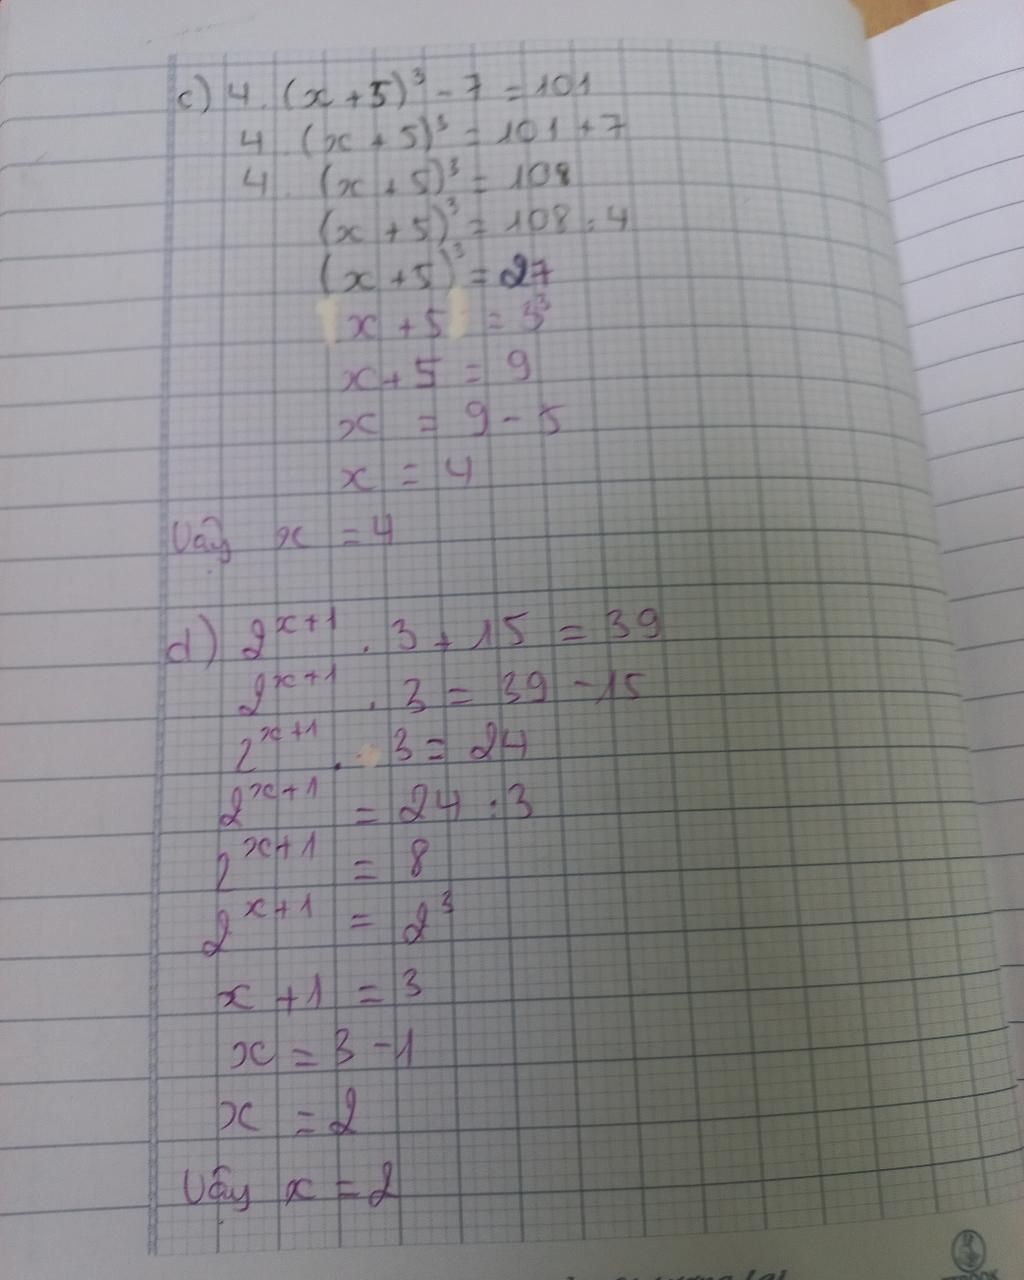 c) 4. (x+5)³ - 7 = 101
4 (x+5)³ = 101 + 7
4. (x+5)³ = 108
(x+5)³ = 108 : 4
(x+5)³ = 27
x + 5 = 3³
x + 5 = 9
x = 9 - 5
x = 4
Vậy x = 4
d) 2^{x+1} . 3 + 15 = 39
2^{x+1} . 3 = 39 - 15
2^{x+1} . 3 = 24
2^{x+1} = 24 : 3
2^{x+1} = 8
2^{x+1} = 2³
x + 1 = 3
x = 3 - 1
x = 2
Vậy x = 2